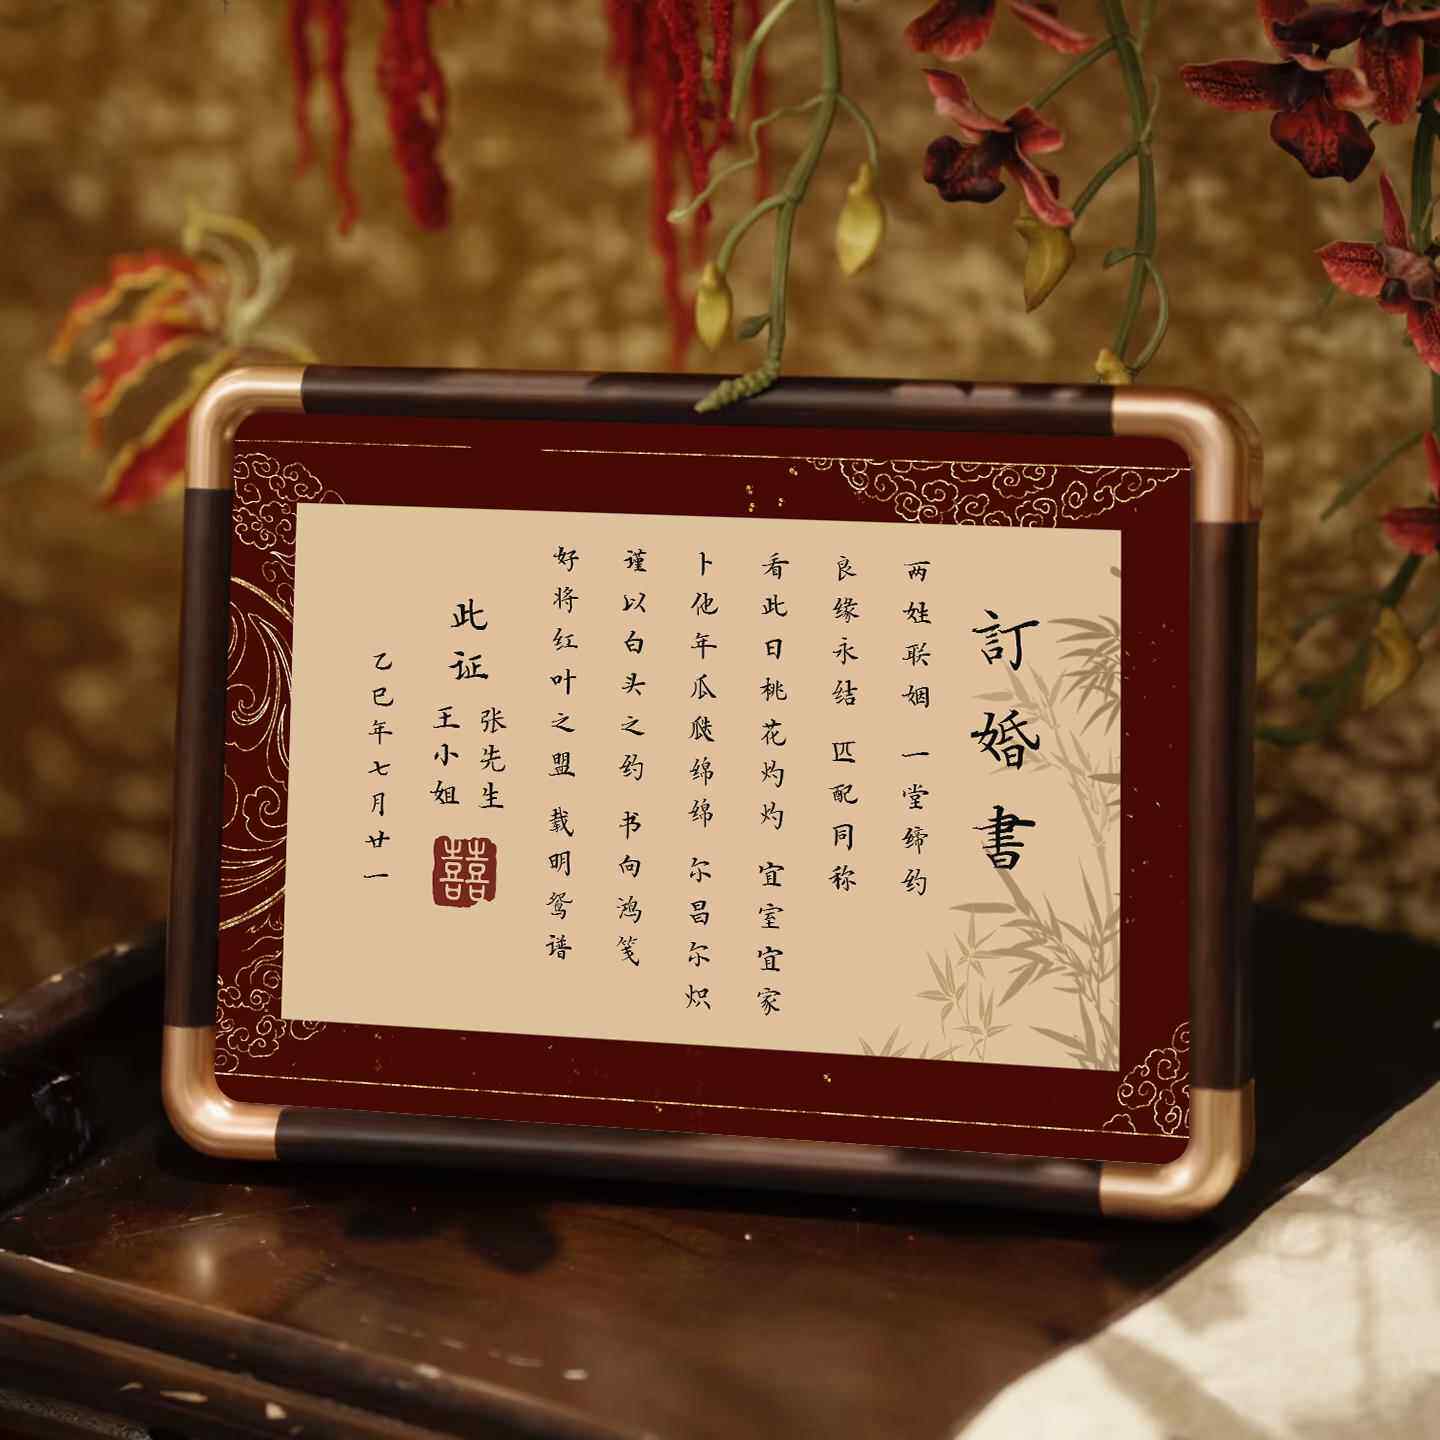 訂婚書
两姓联姻 一堂缔约
良缘永结 匹配同称
看此日桃花灼灼 宜室宜家
卜他年瓜瓞绵绵 尔昌尔炽
谨以白头之约 书向鸿笺
好将红叶之盟 载明鸳谱
此证
张先生
王小姐
囍
乙巳年七月廿一